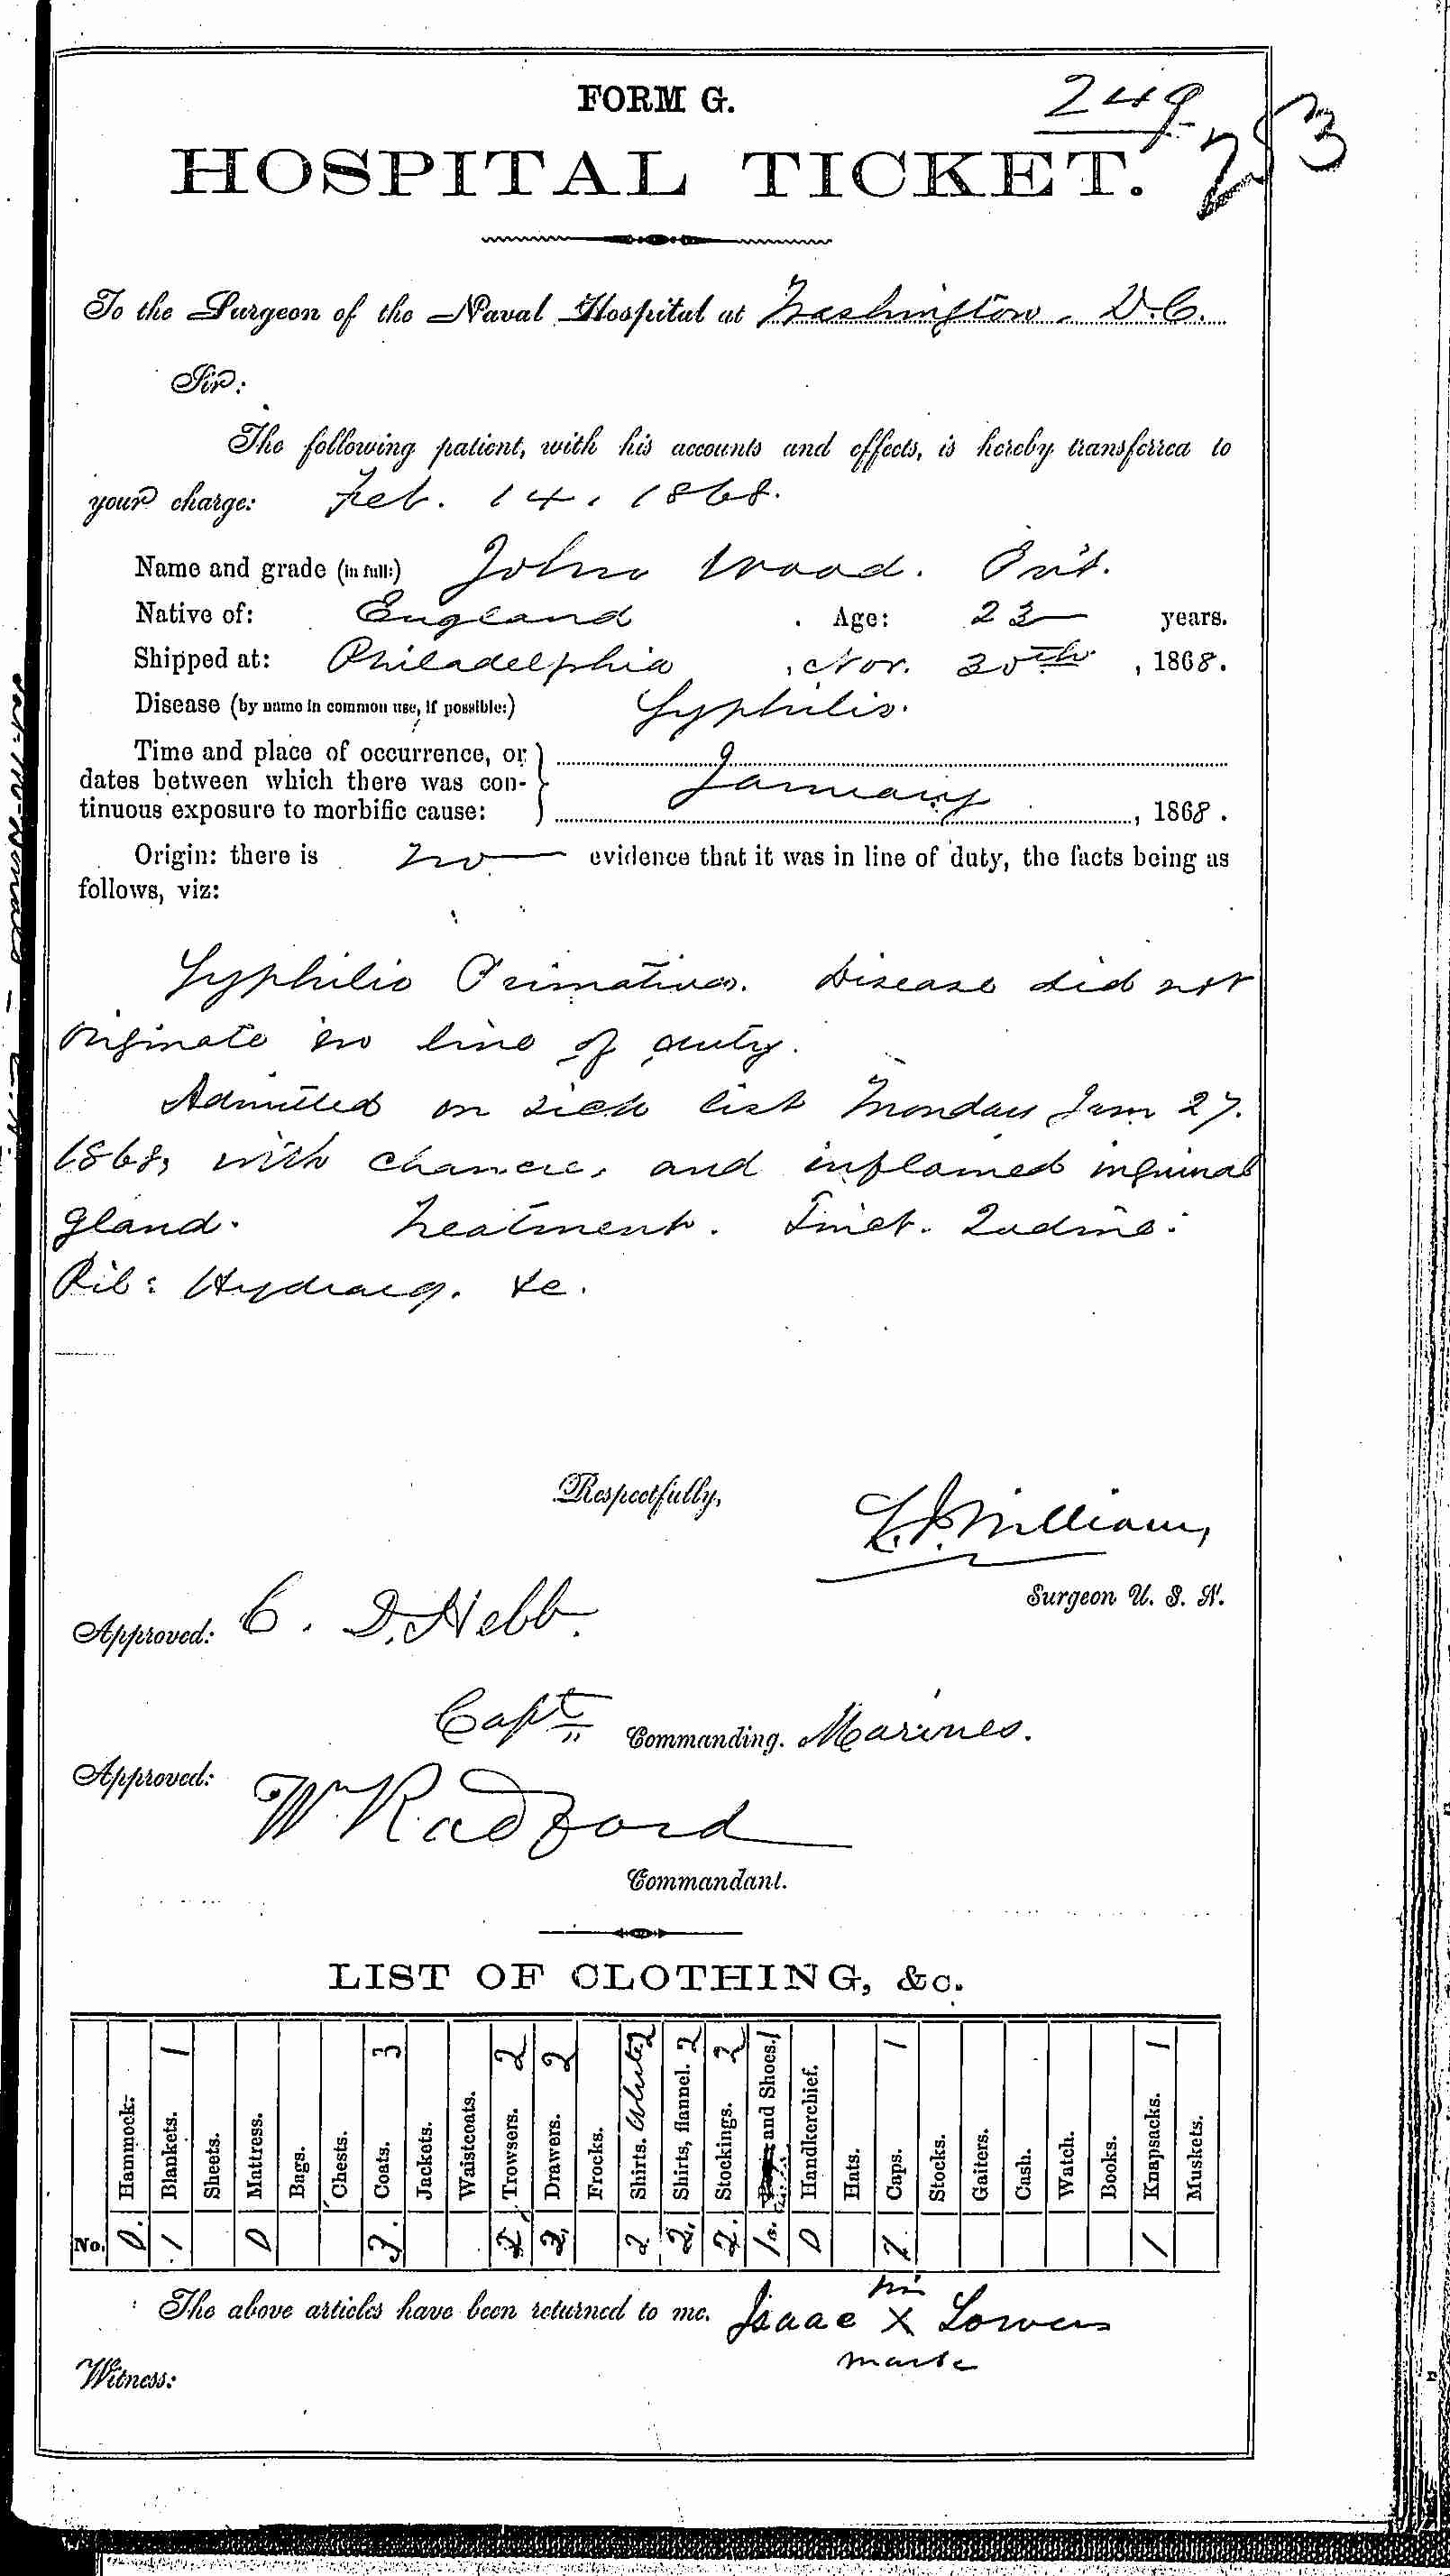 FORM G.
249
253
HOSPITAL TICKET.
To the Surgeon of the Naval Hospital at Washington, D.C.
Sir:
The following patient, with his accounts and effects, is hereby transferred to
your charge: Feb. 14, 1868.
Name and grade (in full:) John Wood. Pvt.
Native of: England. Age: 23 years.
Shipped at: Philadelphia, Nov. 30th, 1868.
Disease (by name in common use, if possible:) Syphilis.
Time and place of occurrence, or
dates between which there was con-
tinuous exposure to morbific cause: January, 1868.
Origin: there is no evidence that it was in line of duty, the facts being as
follows, viz:
Syphilis Primativa. Disease did not
originate in line of duty.
Admitted on sick list Monday Jan 27.
1868, with chancre, and inflamed inguinal
gland. Treatment. Tinct. Iodine:
Pil: Hydrarg. &c.
Respectfully,
Williams
Surgeon U. S. N.
Approved: C. D. Hebb.
Capt Commanding. Marines.
Approved:
Wm Radford
Commandant.
LIST OF CLOTHING, &c.
Hammock.
Blankets. 1
Sheets.
Mattress.
Bags.
Chests.
Coats. 3
Jackets.
Waistcoats.
Trowsers. 2
Drawers. 2
Frocks.
Shirts. White 2
Shirts, flannel. 2
Stockings. 2
and Shoes. 1
Handkerchief.
Hats.
Caps. 1
Stocks.
Gaiters.
Cash.
Watch.
Books.
Knapsacks. 1
Muskets.
No. 0. 1 0 3. 2 2 2 2. 2. 0 1. 1
The above articles have been returned to me. Isaac his X mark Lowers
Witness: